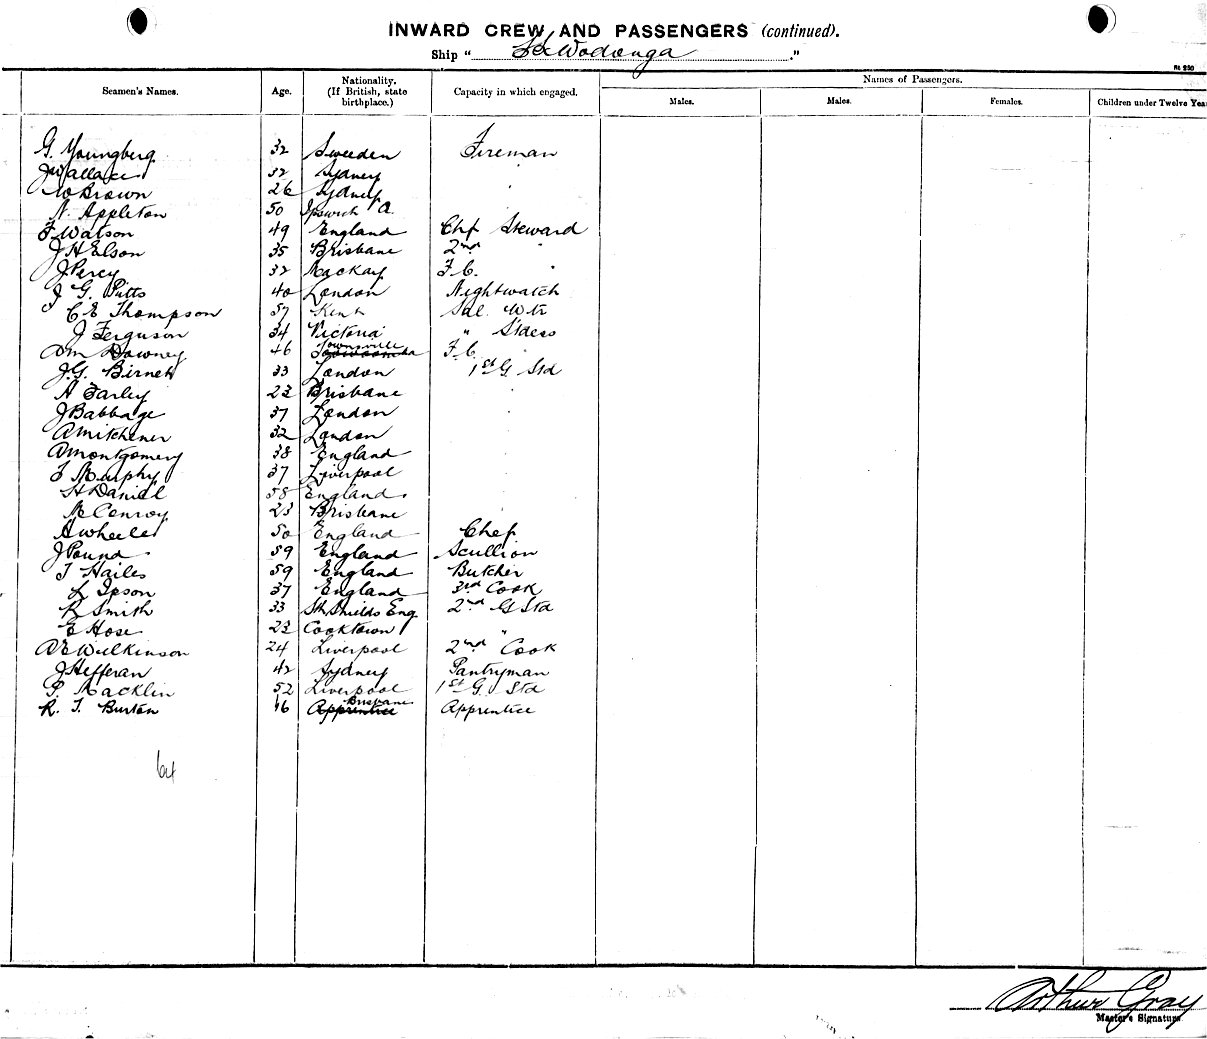 INWARD CREW AND PASSENGERS (continued).
Ship " SS Wodonga ."
Seamen's Names. Age. Nationality. (If British, state birthplace.) Capacity in which engaged. Names of Passengers.
Males. Males. Females. Children under Twelve Year
G. Youngberg 32 Sweeden Fireman
J Wallace 32 Sydney "
W Brown 26 Sydney "
N. Appleton 50 Ipswich Q. "
F Watson 49 England Chf Steward
J H Elson 35 Brisbane 2nd "
J Percy 32 Mackay F.C. "
J G. Pitts 40 London Nightwatch
C E Thompson 57 Kent Sal. Wtr
J Ferguson 34 Victoria " Stdess
D M Downey 46 Townsville Toowoomba F.C.
J.G. Birnek 33 London 1st G Std
A Farley 22 Brisbane "
J Babbage 37 London "
A Mitchener 32 London "
A Montgomery 38 England "
F Murphy 37 Liverpool "
H Daniel 58 England "
McConroy 23 Brisbane "
A Wheeler 50 England Chef
J Pound 59 England Scullion
T Hailes 59 England Butcher
L Ipson 37 England 3rd Cook
R Smith 33 Sth Shields Eng 2nd G Std
E Hose 23 Cooktown "
A E Wilkinson 24 Liverpool 2nd Cook
J Hefferan 42 Sydney Pantryman
P. Macklin 52 Liverpool 1st G. Std
R. T. Burton 16 Brisbane Apprentice Apprentice
64
Arthur Gray
Master's Signature